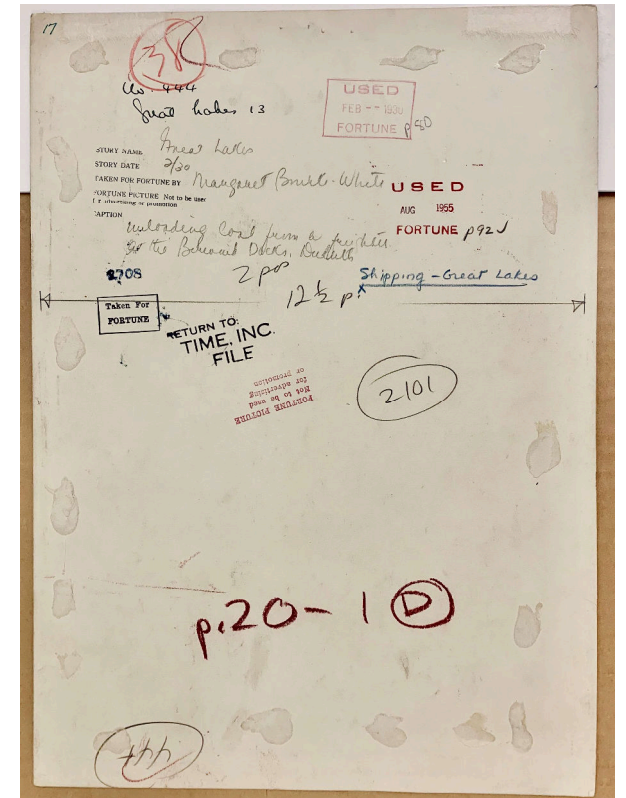 17
38
No. 444
Great Lakes 13
USED
FEB -- 1930
FORTUNE p 80
STORY NAME Great Lakes
STORY DATE 2/30
TAKEN FOR FORTUNE BY Margaret Bourke-White
USED
AUG 1955
FORTUNE p92
FORTUNE PICTURE Not to be used
for advertising or promotion
CAPTION
Unloading Coal from a freighter
at the Docks, Duluth
2708
2 pos
Shipping-Great Lakes
12 1/2 p.
x
Taken For
FORTUNE
RETURN TO:
TIME, INC.
FILE
FORTUNE PICTURE
Not to be used
for advertising
or promotion
2101
p.20-1 D
444